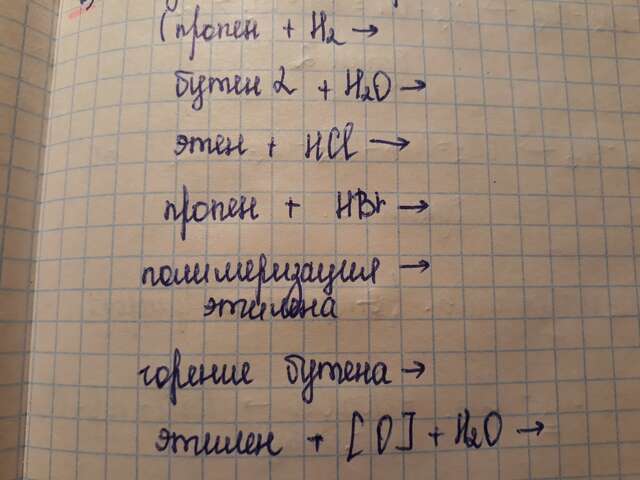 (пропен + H₂ →
бутен 2 + H₂O →
этен + HCl →
пропен + HBr →
полимеризация →
этилена
горение бутена →
этилен + [O] + H₂O →